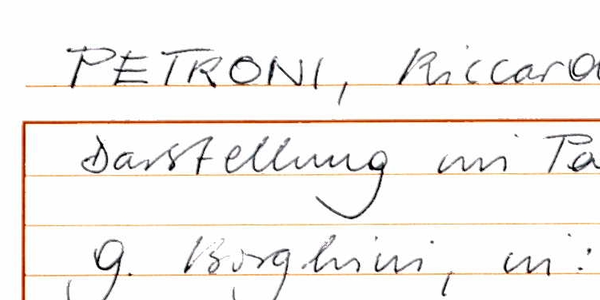 PETRONI, Riccardo
Darstellung im Pa
G. Borghini, in: